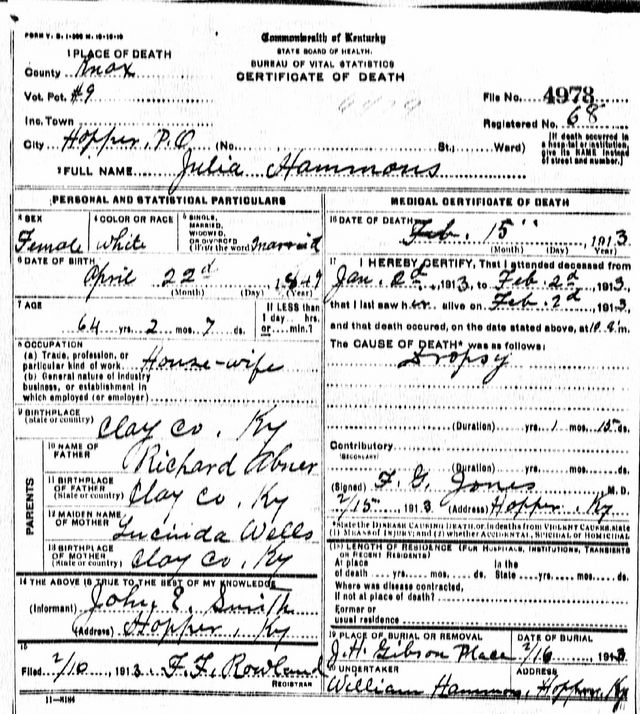 FORM V. S. 1
Commonwealth of Kentucky
STATE BOARD OF HEALTH.
BUREAU OF VITAL STATISTICS
CERTIFICATE OF DEATH
1 PLACE OF DEATH
County Knox
Vot. Pct. #9
Inc. Town
City Hopper, P.O. (No. St.; Ward)
File No. 4973
Registered No. 68
[If death occurred in a hospital or institution, give its NAME instead of street and number.]
2 FULL NAME Julia Hammons
PERSONAL AND STATISTICAL PARTICULARS
3 SEX
Female
4 COLOR OR RACE
White
5 SINGLE, MARRIED, WIDOWED, OR DIVORCED (Write the word) married
6 DATE OF BIRTH
April 22d 1849
(Month) (Day) (Year)
7 AGE
64 yrs. 2 mos. 7 ds.
If LESS than 1 day hrs. or min.?
8 OCCUPATION
(a) Trade, profession, or particular kind of work House-wife
(b) General nature of industry business, or establishment in which employed (or employer)
9 BIRTHPLACE
(State or country) Clay Co. Ky
PARENTS
10 NAME OF FATHER Richard Abner
11 BIRTHPLACE OF FATHER (State or country) Clay Co. Ky
12 MAIDEN NAME OF MOTHER Lucinda Wells
13 BIRTHPLACE OF MOTHER (State or country) Clay Co. Ky
14 THE ABOVE IS TRUE TO THE BEST OF MY KNOWLEDGE
(Informant) John E. Smith
(Address) Hopper, Ky
15
Filed 2/16 1913 F. F. Rowland
REGISTRAR
MEDICAL CERTIFICATE OF DEATH
16 DATE OF DEATH
Feb. 15" 1913
(Month) (Day) (Year)
17 I HEREBY CERTIFY, That I attended deceased from
Jan. 2d, 1913, to Feb. 2d 1913,
that I last saw her alive on Feb. 2d 1913,
and that death occured, on the date stated above, at 10
The CAUSE OF DEATH* was as follows:
Dropsy
(Duration) yrs. 1 mos. 15 ds.
Contributory
(SECONDARY)
(Duration) yrs. mos. ds.
(Signed) F. G. Jones M. D.
2/15 1913 (Address) Hopper, Ky
*State the DISEASE CAUSING DEATH, or in deaths from VIOLENT CAUSES, state (1) MEANS OF INJURY; and (2) whether ACCIDENTAL, SUICIDAL OR HOMICIDAL
18 LENGTH OF RESIDENCE (FOR HOSPITALS, INSTITUTIONS, TRANSIENTS OR RECENT RESIDENTS)
At place of death yrs. mos. ds. In the State yrs. mos. ds.
Where was disease contracted, if not at place of death?
Former or usual residence
19 PLACE OF BURIAL OR REMOVAL
J. H. Gibson Place
DATE OF BURIAL
2/16 1913
20 UNDERTAKER
William Hammons
ADDRESS
Hopper, Ky